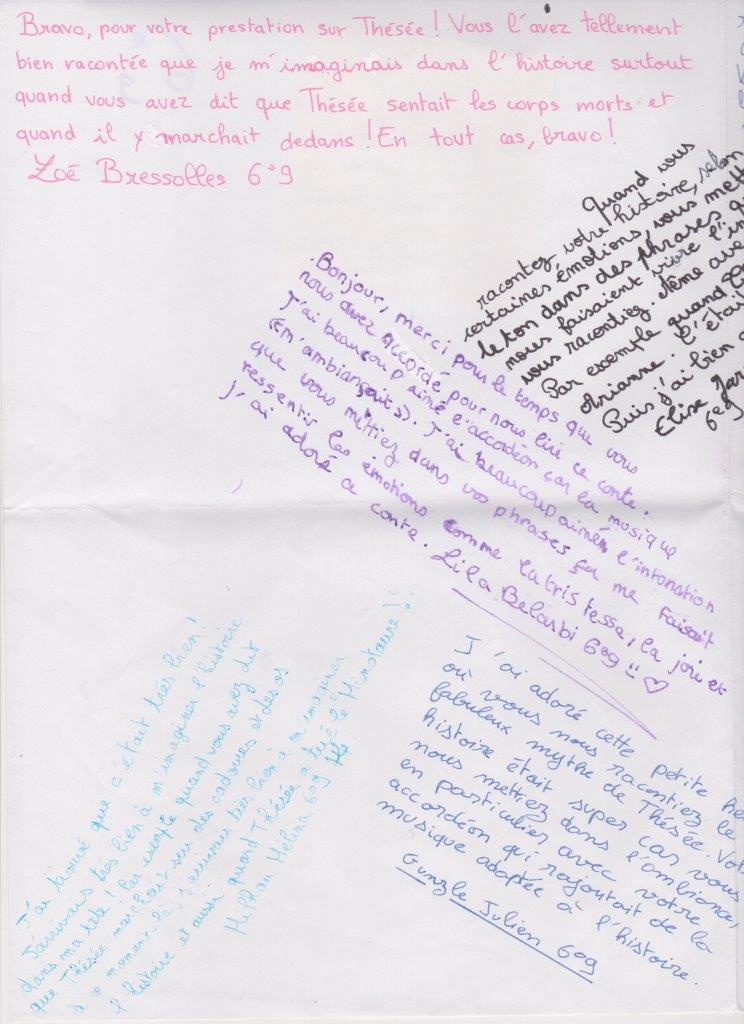 Bravo, pour votre prestation sur Thésée ! Vous l'avez tellement
bien racontée que je m'imaginais dans l'histoire surtout
quand vous avez dit que Thésée sentait les corps morts et
quand il y marchait dedans ! En tout cas, bravo !
Zoé Bressolles 6°9
Quand vous
racontez votre histoire, selon
certaines émotions, vous mett
le ton dans des phrases q
nous faisaient vivre l'in
vous racontiez. Même ave
Par exemple quand
Arianne. C'était
Puis j'ai bien
Elise
6°9
.Bonjour, merci pour le temps que vous
nous avez accordé pour nous lire ce conte.
J'ai beaucoup aimé l'accordéon car la musique
« m'ambiançait ». J'ai beaucoup aimé l'intonation
que vous mettiez dans vos phrases ça me faisait
ressentir les émotions comme la tristesse, la joie et
j'ai adoré ce conte. Lila Belarbi 6°9 !! ♡
J'ai trouvé que c'était très bien !
J'arrivais très bien à m'imaginer l'histoire
dans ma tête ! Par exemple quand vous avez dit
que Thésée marchait sur des cadavres et des os
à ce moment-là j'arrivais très bien à m'imaginer
l'histoire et aussi quand Thésée a tué le Minotaure !!
Héléna 6°9
J'ai adoré cette petite he
où vous nous racontiez le
fabuleux mythe de Thésée. Vot
histoire était super car vous
nous mettiez dans l'ambiance,
en particulier avec votre
accordéon qui rajoutait de la
musique adaptée à l'histoire.
Julien 6°9